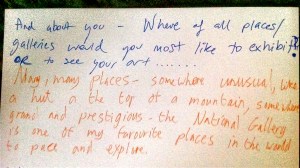 And about you - Where of all places/
galleries would you most like to exhibit?
OR to see your art .......
Many, many places - somewhere unusual,
a hut a the top of a mountain, somewhere
grand and prestigious - the National Gallery
is one of my favourite places in the world
to and explore.